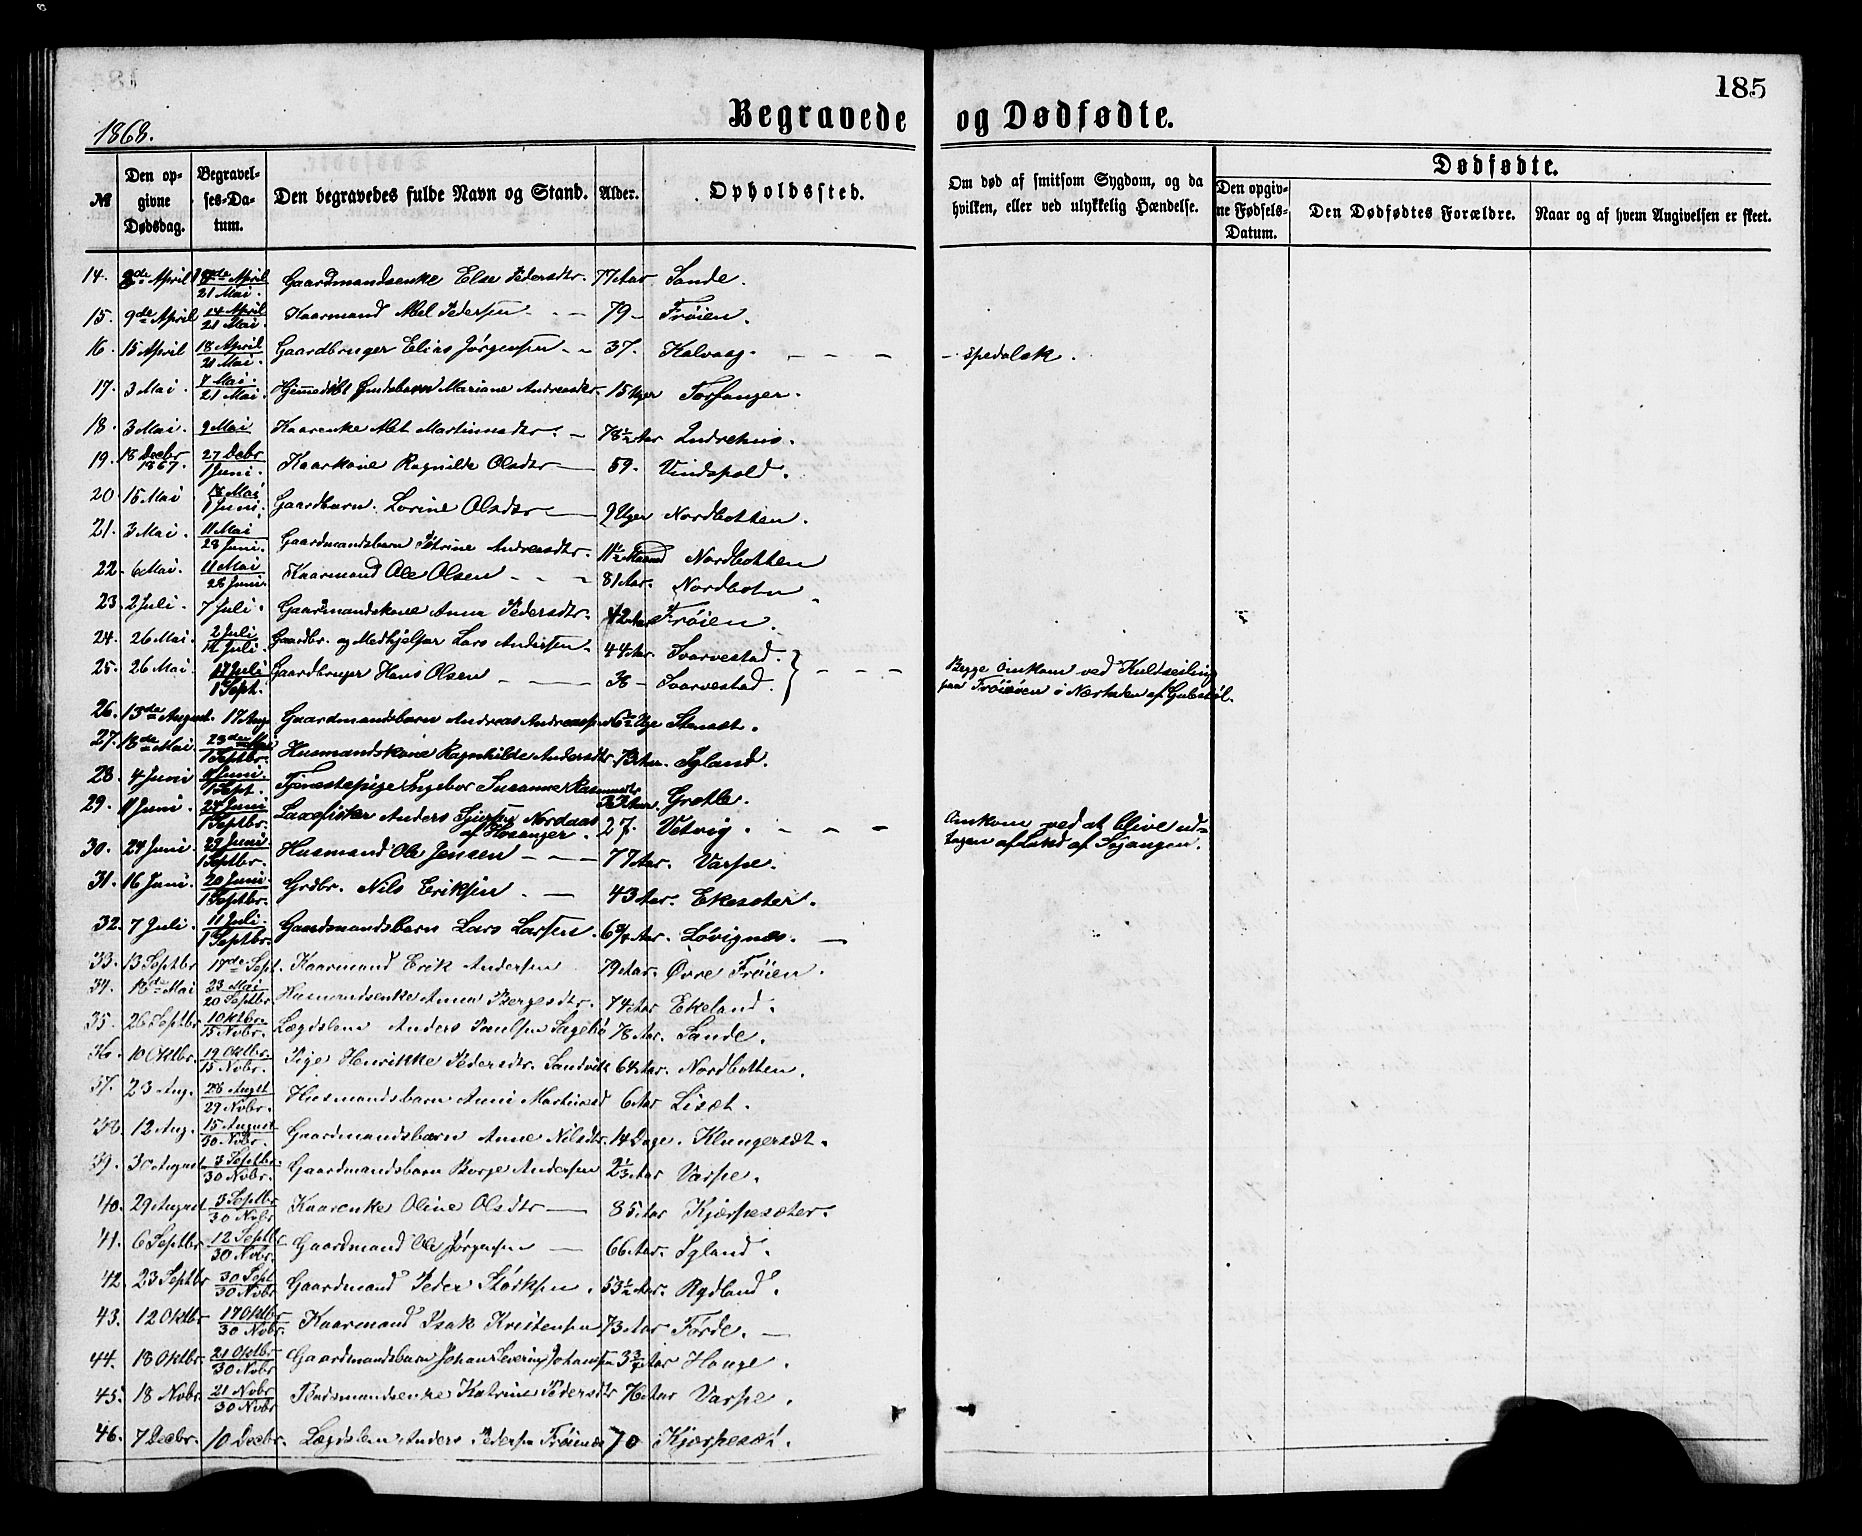 185
1868.
Begravede og Dødfødte.
№
Den opgivne Dødsdag.
Begravelses-Datum.
Den begravedes fulde Navn og Stand.
Alder.
Opholdssted.
Om død af smitsom Sygdom, og da hvilken, eller ved ulykkelig Hændelse.
Dødfødte.
Den opgivne Fødsels-Datum.
Den Dødfødtes Forældre.
Naar og af hvem Angivelsen er skeet.
14. April April 21 Mai. Gaardmandsenke Else Pedersdtr. 77 Aar Sande.
15. 9de April 14 April 21 Mai. Kaarmand Abel Pedersen 79 - Frøien.
16. 15 April 18 April 21 Mai. Gaardbruger Elias Jørgensen 37. Kalvaag. - - - spedalsk.
17. 3 Mai. 7 Mai. 21 Mai. Hjemmedøbt Mariane Andreasdtr. 15 Uger Torfanger.
18. 3 Mai. 9 Mai Kaarenke Martinusdtr. 78½ Aar Indrehus.
19. 18 Decbr 1867. 27 Debr 1 Juni. Kaarkone Ragnilde Olsdtr 59. Vindspold.
20 15 Mai 18 Mai 1 Juni. Gaardbarn. Lorine Olsdtr 9 Uger Nordbotten.
21. 3 Mai. 11 Mai 28 Juni. Gaardmandsbarn Petrine Andreasdtr. 11½ Maaned Nordbotten
22. 6 Mai. 11 Mai 28 Juni. Kaarmand Ole Olsen 81 Aar. Nordbotn
23. 2 Juli. 7 Juli. Gaardmandskone Anna Pedersdtr. 42 Aar Frøien.
24. 26 Mai. 2 Juli 12 Juli. Gaardbr. og Medhjælper Lars Andersen 44 Aar. Svarvestad.
25. 26 Mai 17 Juli 1 Sept. Gaardbruger Hans Olsen 38 - Svarvestad. - - - Begge Omkom ved Kuldseiling paa Frøisøen i Nærheden af
26. 13de August. 17 Aug. Gaardmandsbarn Andreas Andreassen 6½ Uge Stenset.
27. 18de Mai 23de Mai 1 Septbr. Husmandskone Ragnhilde Andersdtr 73 Aar. Igland.
28. 4 Juni Juni. 1 Sept. Tjenestepige Ingebor Susanne Rasmusdtr Aar. Grotle.
29. 11 Juni. 24 Juni 1 Septbr. Laxefisker Anders Nordaas af Hosanger. 27. Vetvig. - - - Omkom ved at blive udtagen af Land af Søgangen.
30. 24 Juni. 29 Juni 1 Septbr. Husmand Ole Jensen 77 Aar. Varpe.
31. 16 Juni. 20 Juni. 1 Septbr. Grdbr. Nils Eriksen. 43 Aar. Ekesæter.
32. 7 Juli. 11 Juli. 1 Septbr. Gaardmandsbarn Lars Larsen. 6¾ Aar. Løvignæs.
33. 13 Septbr 17de Sept. Kaarmand Erik Andersen 79 Aar. Øvre Frøien.
34. 18de Mai 23 Mai 20 Septbr Husmandsenke Anna Børgesdtr. 74 Aar Ekeland.
35. 26 Septbr 1 Oktbr. 15 Novbr. Lægdslem Anders Paulsen Sagebø 78 Aar. Sande.
36. 10 Oktbr. 19 Oktbr. 15 Novbr. Pige Henrikke Pedersdtr. Sandvik 64 Aar. Nordbotten.
37. 23 Aug. 28 Augst 29 Nvbr. Husmandsbarn Anni Martinsd 6 Aar Lisæt.
38. 12 Aug. 15 August 30 Nvbr. Gaardmandsbarn Anne Nilsdtr. 14 Dage. Klungersæt.
39. 30 August 3 Septbr. 30 Novbr. Gaardmandsbarn Børge Andersen 2⅓ Aar Varpe.
40. 29 August 3 Septbr 30 Nvbr Kaarenke Oline Olsdtr 85 Aar Kjærpesæter.
41. 6 Septbr 12 Septbr 30 Nvbr. Gaardmand Ole Jørgensen 66 Aar. Igland.
42 23 Septbr 30 Sept 30 Nvbr Gaardmand Peder Størksen. 53½ Aar. Rydland.
43. 12 Oktbr 17 Oktbr 30 Nvbr. Kaarmand Isak Kristensen 73 Aar Førde.
44. 18 Oktbr. 21 Oktbr. 30 Novbr Gaardmandsbarn Johan Severin Johansen 3¾ Aar Hauge.
45. 18 Nvbr. 21 Nvbr 30 Nvbr Baadsmandsenke Katrine Pedersdtr 76 Aar Varpe.
46. 7 Decbr. 10 Decbr. Lægdslem Anders Pedersen Frøienæs 70 Kjærpesæt.